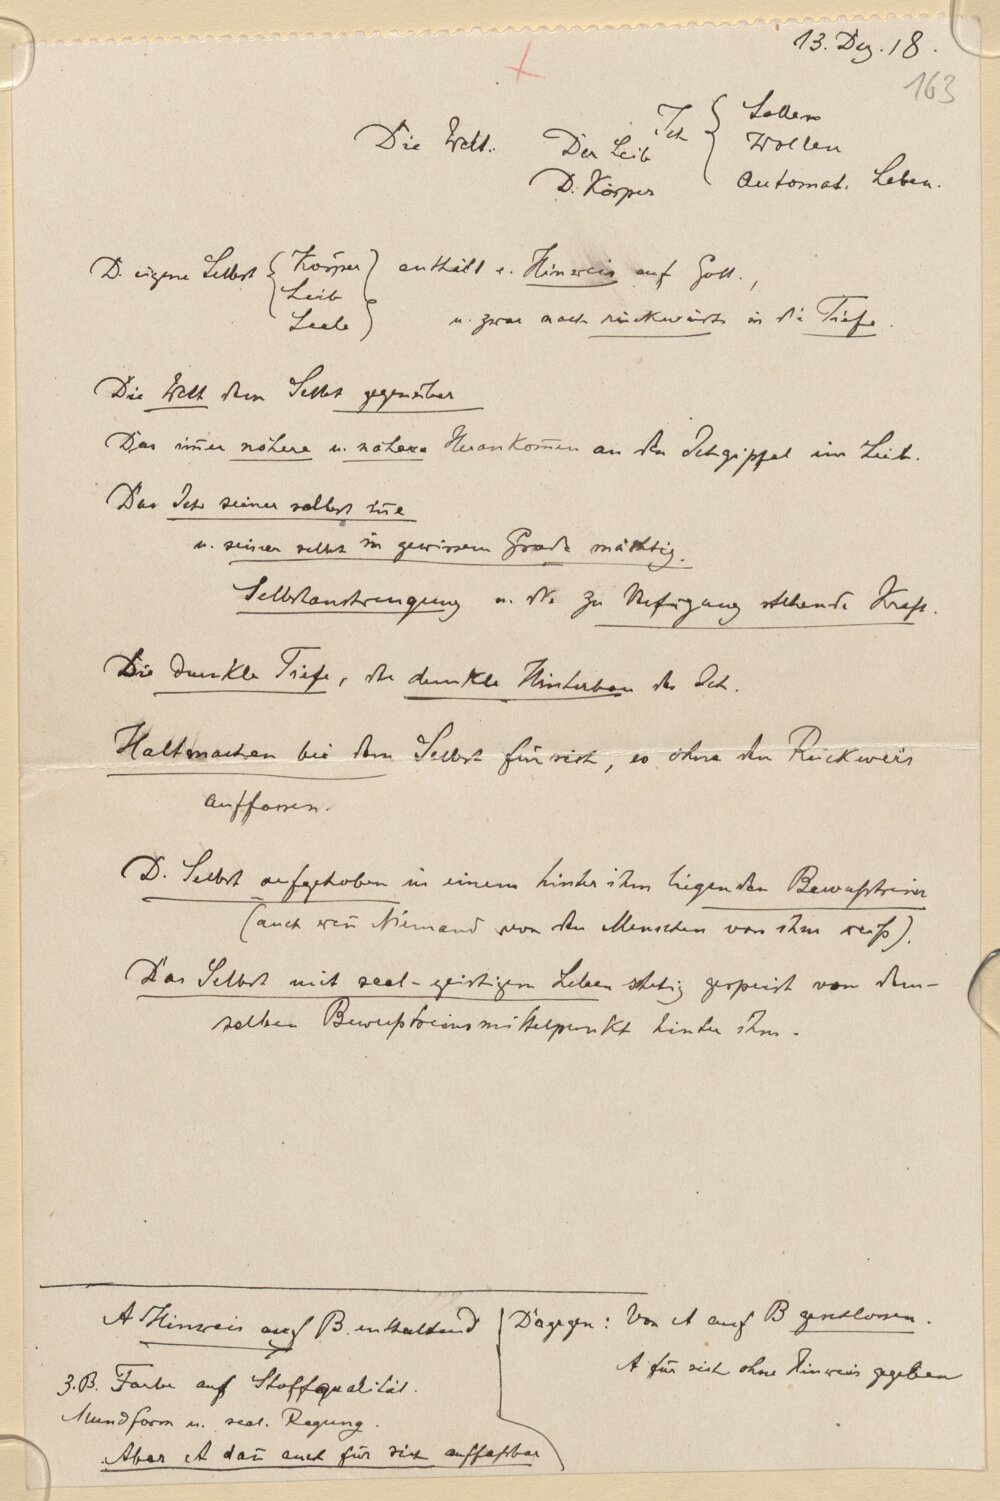 13. Dez. 18.
163
Die Welt. Der Leib Ich { Sollen
Wollen
D. Körper automat. Leben.
D. eigene Selbst { Körper } enthält e. Hinweis auf Gott.,
Leib
Seele u. zwar nach rückwärts in die Tiefe.
Die Welt dem Selbst gegenüber
Das im̅er nähere u. nähere Herankom̅en an den Ichgipfel im Leib.
Das Ich seiner selbst in̅e
u. seiner selbst in gewissem Grade mächtig.
Selbstanstrengung u. die zu Verfügung stehende Kraft.
Die dunkle Tiefe, der dunkle Hinterbau des Ich.
Haltmachen bei dem Selbst für sich, es ohne den Rückweis
auffassen.
D. Selbst aufgehoben in einem hinter ihm liegenden Bewußtsein
(auch wen̅ Niemand von den Menschen von ihm weiß).
Das Selbst mit seel-geistigem Leben stetig gespeist von dem-
selben Bewußtseinsmittelpunkt hinter ihm.
A Hinweis auf B enthaltend
Dagegen: Von A auf B geschlossen.
A für sich ohne Hinweis gegeben
z.B. Farbe auf Stoffqualität.
Mundform u. seel. Regung.
Aber A dan̅ auch für sich auffaßbar